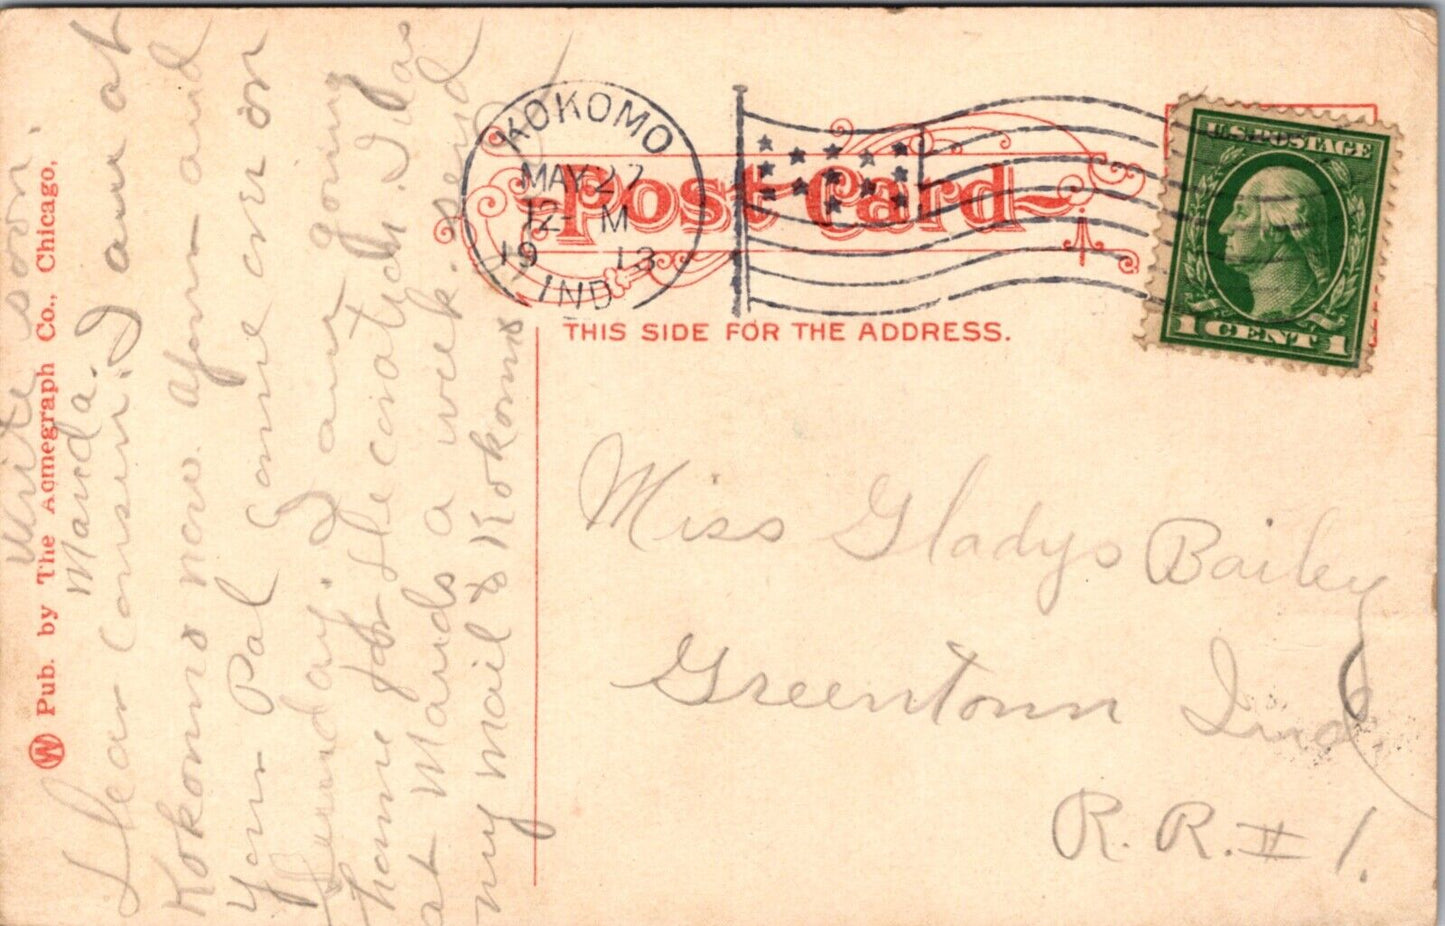 write soon.
Manda.
Dear Cousin: I am at
Kokomo now. Your and
Your Pal came over on
Sunday. I am going
home for Decoration. I was
at Mauds a week. send
my mail to Kokomo
Pub. by The Acmegraph Co., Chicago.
W
KOKOMO
MAY 27
12- M
19 13
IND
Post Card
THIS SIDE FOR THE ADDRESS.
U.S. POSTAGE
1 CENT 1
Miss Gladys Bailey
Greentown Ind
R. R. # 1.